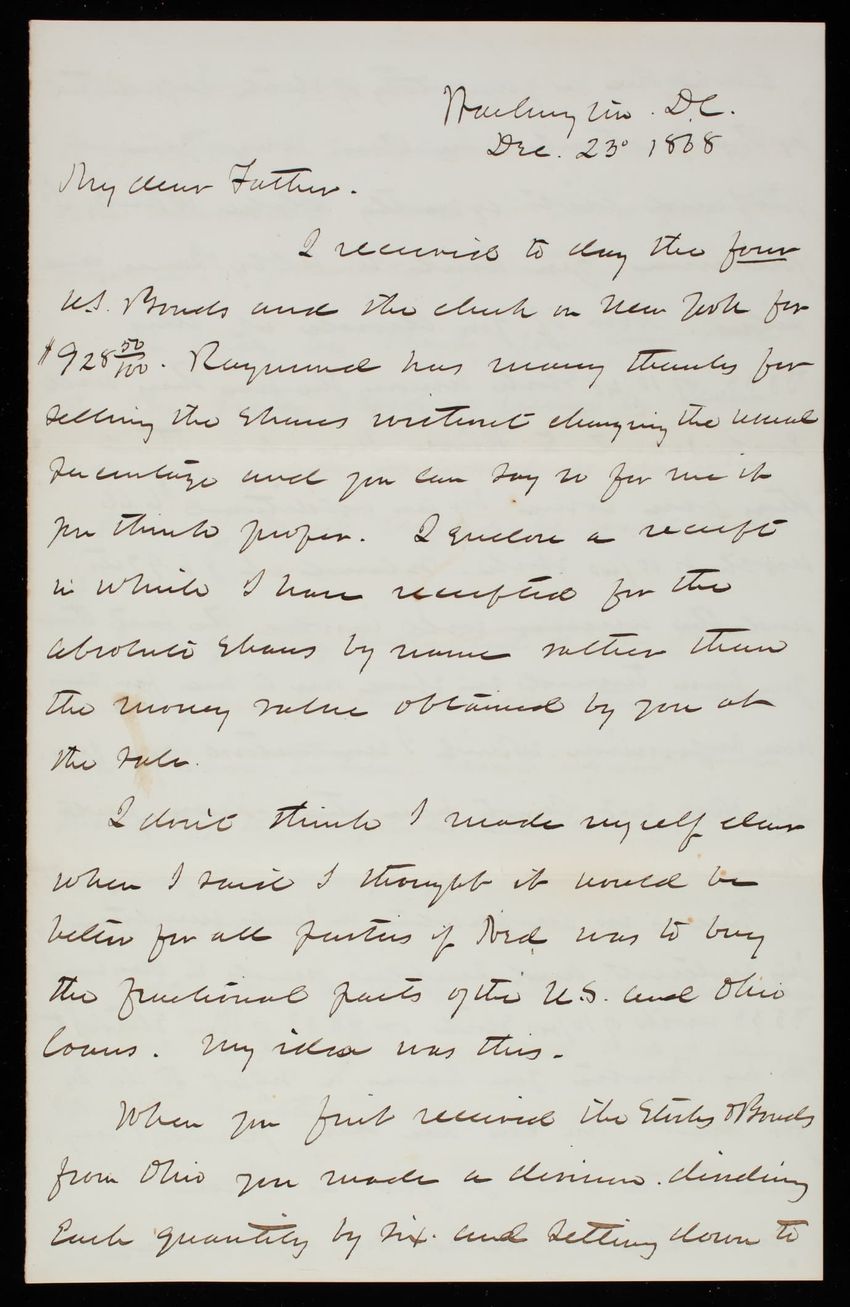 Washington. D.C.
Dec. 23d 1868
My dear Father.
I received to day the four
U.S. Bonds and the check on New York for
$928 50/100. Raymond has many thanks for
selling the shares without charging the usual
percentage and you can say so for me if
you think proper. I enclose a receipt
in which I have receipted for the
absolute shares by name rather than
the money value obtained by you at
the sale.
I don't think I made myself clear
when I said I thought it would be
better for all parties if Ned was to buy
the fractional parts of the U.S. and Ohio
loans. My idea was this.
When you first received the Stocks & Bonds
from Ohio you made a division. dividing
Each quantity by six. and setting down to